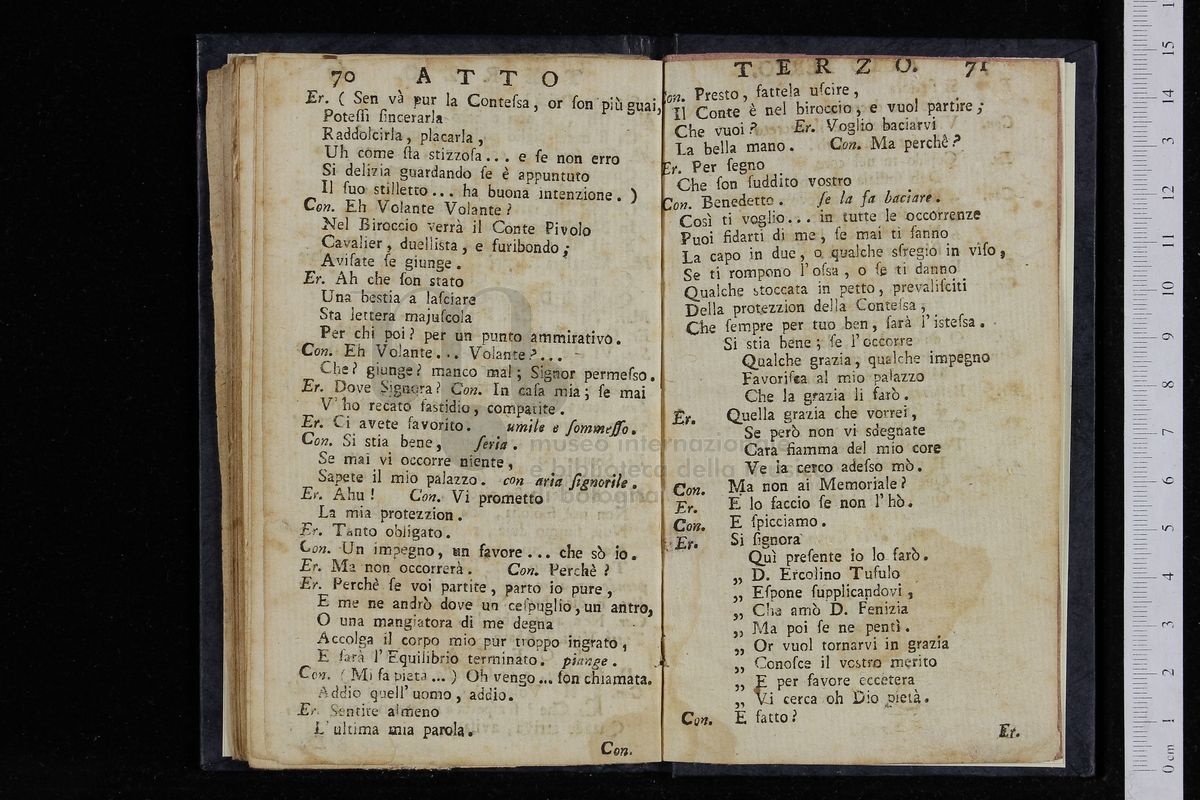 70 ATTO
Er. ( Sen và pur la Conteſsa, or ſon più guai,
Poteſſi ſincerarla
Raddolcirla, placarla,
Uh come ſta stizzoſa... e ſe non erro
Si delizia guardando ſe è appuntuto
Il ſuo stilletto... ha buona intenzione. )
Con. Eh Volante Volante?
Nel Biroccio verrà il Conte Pivolo
Cavalier, duelliſta, e furibondo;
Aviſate ſe giunge.
Er. Ah che ſon stato
Una bestia a laſciare
Sta lettera majuſcola
Per chi poi? per un punto ammirativo.
Con. Eh Volante... Volante?...
Che? giunge? manco mal; Signor permeſso.
Er. Dove Signora? Con. In caſa mia; ſe mai
V'ho recato fastidio, compatite.
Er. Ci avete favorito. umile e ſommeſſo.
Con. Si stia bene, ſeria.
Se mai vi occorre niente,
Sapete il mio palazzo. con aria ſignorile.
Er. Ahu! Con. Vi prometto
La mia protezzion.
Er. Tanto obligato.
Con. Un impegno, un favore... che sò io.
Er. Ma non occorrerà. Con. Perchè?
Er. Perchè ſe voi partite, parto io pure,
E me ne andrò dove un ceſpuglio, un antro,
O una mangiatora di me degna
Accolga il corpo mio pur troppo ingrato,
E ſarà l'Equilibrio terminato. piange.
Con. (Mi fa pietà...) Oh vengo... ſon chiamata.
Addio quell'uomo, addio.
Er. Sentite almeno
L'ultima mia parola.
Con.
TERZO. 71
Con. Presto, fattela uſcire,
Il Conte è nel biroccio, e vuol partire;
Che vuoi? Er. Voglio baciarvi
La bella mano. Con. Ma perchê?
Er. Per ſegno
Che ſon ſuddito vostro
Con. Benedetto. ſe la fa baciare.
Così ti voglio... in tutte le occorrenze
Puoi fidarti di me, ſe mai ti fanno
La capo in due, o qualche sfregio in viſo,
Se ti rompono l'oſsa, o ſe ti danno
Qualche stoccata in petto, prevaliſciti
Della protezzion della Conteſsa,
Che ſempre per tuo ben, ſarà l'isteſsa.
Si stia bene; ſe l'occorre
Qualche grazia, qualche impegno
Favoriſca al mio palazzo
Che la grazia li farò.
Er. Quella grazia che vorrei,
Se però non vi sdegnate
Cara fiamma del mio core
Ve la cerco adeſso mò.
Con. Ma non ai Memoriale?
Er. E lo faccio ſe non l'hò.
Con. E ſpicciamo.
Er. Si ſignora
Quì preſente io lo farò.
„ D. Ercolino Tuſulo
„ Eſpone ſupplicandovi,
„ Cha amò D. Fenizia
„ Ma poi ſe ne pentì.
„ Or vuol tornarvi in grazia
„ Conoſce il vostro merito
„ E per favore eccetera
„ Vi cerca oh Dio pietà.
Con. E fatto?
Er.
museo internazionale
e biblioteca della musica
di bologna